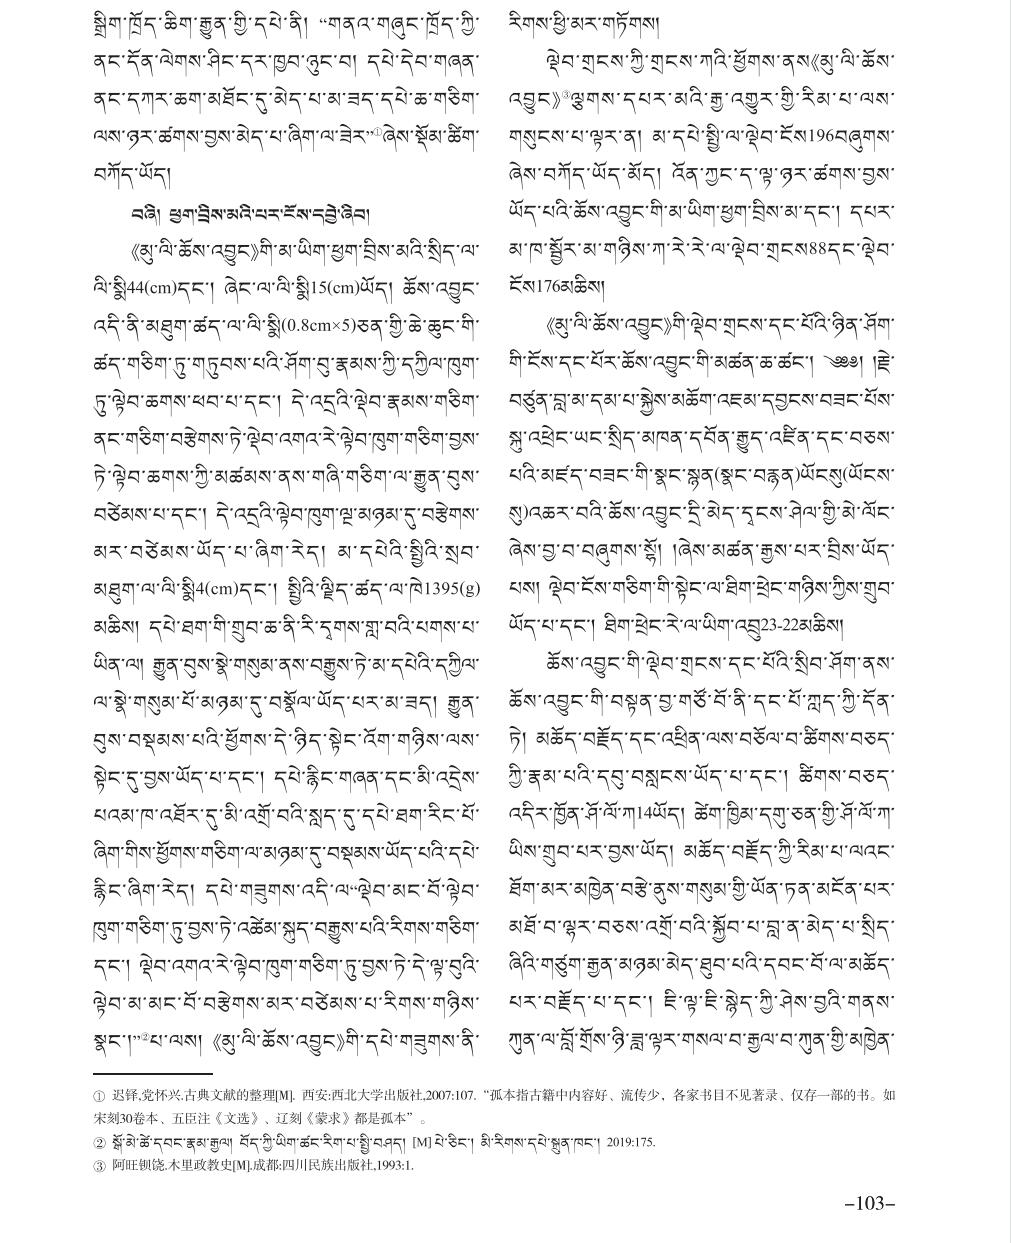 སྒྲིག་ཁྲོད་ཆིག་རྒྱུན་གྱི་དཔེ་ནི། “གནའ་གཞུང་ཁྲོད་ཀྱི་
ནང་དོན་ལེགས་ཤིང་དར་ཁྱབ་ཉུང་བ། དཔེ་དེབ་གཞན་
ནང་དཀར་ཆག་མཐོང་དུ་མེད་པ་མ་ཟད་དཔེ་ཆ་གཅིག་
ལས་ཉར་ཚགས་བྱས་མེད་པ་ཞིག་ལ་ཟེར”①ཞེས་སྡོམ་ཚིག་
བཀོད་ཡོད།
བཞི། ཕྱག་བྲིས་མའི་པར་ངོས་དབྱེ་ཞིབ།
《མུ་ལི་ཆོས་འབྱུང》གི་མ་ཡིག་ཕྱག་བྲིས་མའི་སྲིད་ལ་
ལི་སྨི44(cm)དང་། ཞེང་ལ་ལི་སྨི15(cm)ཡོད། ཆོས་འབྱུང་
འདི་ནི་མཐུག་ཚད་ལ་ལི་སྨི(0.8cm×5)ཅན་གྱི་ཆེ་ཆུང་གི་
ཚད་གཅིག་ཏུ་གཏུབས་པའི་ཤོག་བུ་རྣམས་ཀྱི་དཀྱིལ་ཁུག་
ཏུ་ལྟེབ་ཆགས་ཕབ་པ་དང་། དེ་འདྲའི་ལྡེབ་རྣམས་གཅིག་
ནང་གཅིག་བརྩེགས་ཏེ་ལྡེབ་འགའ་རེ་ལྟེབ་ཁུག་གཅིག་བྱས་
ཏེ་ལྟེབ་ཆགས་ཀྱི་མཚམས་ནས་གཞི་གཅིག་ལ་རྒྱུན་བུས་
བཙེམས་པ་དང་། དེ་འདྲའི་ལྟེབ་ཁུག་ལྔ་མཉམ་དུ་བརྩེགས་
མར་བཙེམས་ཡོད་པ་ཞིག་རེད། མ་དཔེའི་སྤྱིའི་སྲབ་
མཐུག་ལ་ལི་སྨི4(cm)དང་། སྤྱིའི་ལྗིད་ཚད་ལ་ཁེ1395(g)
མཆིས། དཔེ་ཐག་གི་གྲུབ་ཆ་ནི་རི་དྭགས་གླ་བའི་པགས་པ་
ཡིན་ལ། རྒྱུན་བུས་སྣེ་གསུམ་ནས་བརྒྱུས་ཏེ་མ་དཔེའི་དཀྱིལ་
ལ་སྣེ་གསུམ་པོ་མཉམ་དུ་བསྣོལ་ཡོད་པར་མ་ཟད། རྒྱུན་
བུས་བསྡམས་པའི་ཕྱོགས་དེ་ཉིད་སྟེང་འོག་གཉིས་ལས་
སྟེང་དུ་བྱས་ཡོད་པ་དང་། དཔེ་རྙིང་གཞན་དང་མི་འདྲེས་
པའམ་ཁ་འཐོར་དུ་མི་འགྲོ་བའི་སླད་དུ་དཔེ་ཐག་རིང་པོ་
ཞིག་གིས་ཕྱོགས་གཅིག་ལ་མཉམ་དུ་བསྡམས་ཡོད་པའི་དཔེ་
རྙིང་ཞིག་རེད། དཔེ་གཟུགས་འདི་ལ“ལྡེབ་མང་པོ་ལྟེབ་
ཁུག་གཅིག་ཏུ་བྱས་ཏེ་འཚེམ་སྐུད་བརྒྱུས་པའི་རིགས་གཅིག་
དང་། ལྡེབ་འགའ་རེ་ལྟེབ་ཁུག་གཅིག་ཏུ་བྱས་ཏེ་དེ་ལྟ་བུའི་
ལྟེབ་མ་མང་པོ་བརྩེགས་མར་བཙེམས་པ་རིགས་གཉིས་
སྣང་།”②པ་ལས། 《མུ་ལི་ཆོས་འབྱུང》གི་དཔེ་གཟུགས་ནི་
རིགས་ཕྱི་མར་གཏོགས།
ལྡེབ་གྲངས་ཀྱི་གྲངས་ཀའི་ཕྱོགས་ནས《མུ་ལི་ཆོས་
འབྱུང》③ལྕགས་དཔར་མའི་རྒྱ་འགྱུར་གྱི་རིམ་པ་ལས་
གསུངས་པ་ལྟར་ན། མ་དཔེ་སྤྱི་ལ་ལྡེབ་ངོས196བཞུགས་
ཞེས་བཀོད་ཡོད་མོད། འོན་ཀྱང་ད་ལྟ་ཉར་ཚགས་བྱས་
ཡོད་པའི་ཆོས་འབྱུང་གི་མ་ཡིག་ཕྱག་བྲིས་མ་དང་། དཔར་
མ་ཁ་སྦྱོར་མ་གཉིས་ཀ་རེ་རེ་ལ་ལྡེབ་གྲངས88དང་ལྡེབ་
ངོས176མཆིས།
《མུ་ལི་ཆོས་འབྱུང》གི་ལྡེབ་གྲངས་དང་པོའི་ཉིན་ཤོག་
གི་ངོས་དང་པོར་ཆོས་འབྱུང་གི་མཚན་ཆ་ཚང་། ༄༅༅། །རྗེ་
བཙུན་བླ་མ་དམ་པ་སྐྱེས་མཆོག་འཇམ་དབྱངས་བཟང་པོས་
སྐུ་འཕྲེང་ཡང་སྲིད་མཁན་དབོན་རྒྱུད་འཛིན་དང་བཅས་
པའི་མཛད་བཟང་གི་སྣང་སྙན(སྣང་བརྙན)ཡོངསུ(ཡོངས་
སུ)འཆར་བའི་ཆོས་འབྱུང་དྲི་མེད་དྭངས་ཤེལ་གྱི་མེ་ལོང་
ཞེས་བྱ་བ་བཞུགས་སྷོ། །ཞེས་མཚན་རྒྱས་པར་བྲིས་ཡོད་
པས། ལྡེབ་ངོས་གཅིག་གི་སྟེང་ལ་ཐིག་ཕྲེང་གཉིས་ཀྱིས་གྲུབ་
ཡོད་པ་དང་། ཐིག་ཕྲེང་རེ་ལ་ཡིག་འབྲུ23-22མཆིས།
ཆོས་འབྱུང་གི་ལྡེབ་གྲངས་དང་པོའི་སྲིབ་ཤོག་ནས་
ཆོས་འབྱུང་གི་བསྟན་བྱ་གཙོ་བོ་ནི་དང་པོ་ཀླད་ཀྱི་དོན་
ཏེ། མཆོད་བརྗོད་དང་འཕྲིན་ལས་བཅོལ་བ་ཚིགས་བཅད་
ཀྱི་རྣམ་པའི་དབུ་བསླངས་ཡོད་པ་དང་། ཚིགས་བཅད་
འདིར་ཁྱོན་ཤོ་ལོ་ཀ14ཡོད། ཚེག་ཁྱིམ་དགུ་ཅན་གྱི་ཤོ་ལོ་ཀ་
ཡིས་གྲུབ་པར་བྱས་ཡོད། མཆོད་བརྗོད་ཀྱི་རིམ་པ་ལའང་
ཐོག་མར་མཁྱེན་བརྩེ་ནུས་གསུམ་གྱི་ཡོན་ཏན་མངོན་པར་
མཐོ་བ་ལྷར་བཅས་འགྲོ་བའི་སྐྱོབ་པ་བླ་ན་མེད་པ་སྲིད་
ཞིའི་གཙུག་རྒྱན་མཉམ་མེད་ཐུབ་པའི་དབང་པོ་ལ་མཆོད་
པར་བརྗོད་པ་དང་། ཇི་ལྟ་ཇི་སྙེད་ཀྱི་ཤེས་བྱའི་གནས་
ཀུན་ལ་བློ་གྲོས་ཉི་ཟླ་ལྟར་གསལ་བ་རྒྱལ་བ་ཀུན་གྱི་མཁྱེན་
① 迟铎,党怀兴.古典文献的整理[M]. 西安:西北大学出版社,2007:107. “孤本指古籍中内容好、流传少，各家书目不见著录、仅存一部的书。如
宋刻30卷本、五臣注《文选》、辽刻《蒙求》都是孤本”。
② སྒོ་མེ་ཚེ་དབང་རྣམ་རྒྱལ། བོད་ཀྱི་ཡིག་ཚང་རིག་པ་སྤྱི་བཤད། [M] པེ་ཅིང་། མི་རིགས་དཔེ་སྐྲུན་ཁང་། 2019:175.
③ 阿旺钦饶.木里政教史[M].成都:四川民族出版社,1993:1.
-103-